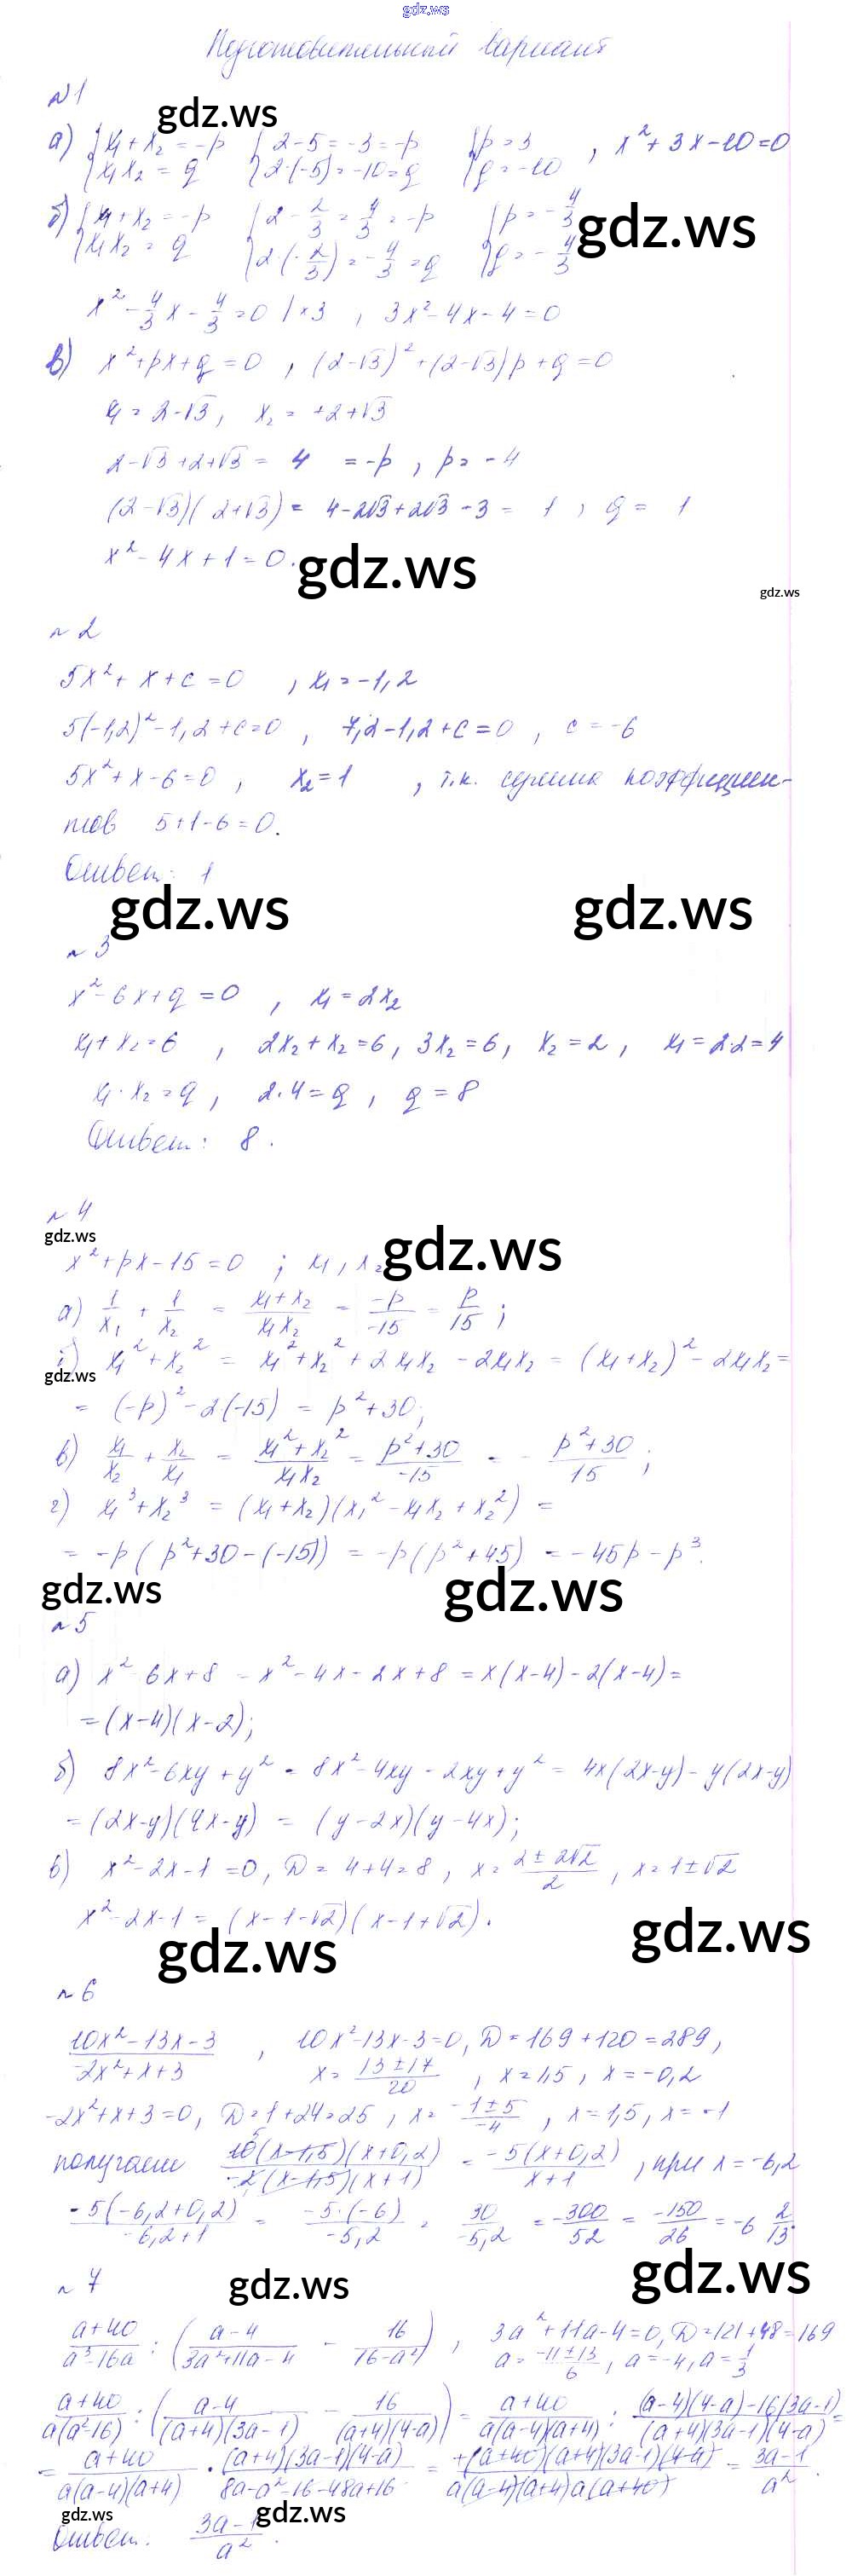 gdz.ws
Подготовительный вариант
№1
gdz.ws
а) { x₁ + x₂ = -p { 2 - 5 = -3 = -p { p = 3 , x² + 3x - 10 = 0
{ x₁x₂ = q { 2·(-5) = -10 = q { q = -10
б) { x₁ + x₂ = -p { 2 - 2/3 = 4/3 = -p { p = -4/3
gdz.ws
{ x₁x₂ = q { 2·(-2/3) = -4/3 = q { q = -4/3
x² - 4/3 x - 4/3 = 0 | ×3 , 3x² - 4x - 4 = 0
в) x² + px + q = 0 , (2-√3)² + (2-√3)p + q = 0
x₁ = 2-√3, x₂ = +2+√3
2-√3+2+√3 = 4 = -p , p = -4
(2-√3)(2+√3) = 4-2√3+2√3-3 = 1 , q = 1
x² - 4x + 1 = 0.
gdz.ws
gdz.ws
№2
5x² + x + c = 0 , x₁ = -1,2
5(-1,2)² - 1,2 + c = 0 , 7,2 - 1,2 + c = 0 , c = -6
5x² + x - 6 = 0 , x₂ = 1 , т.к. сумма коэффициен-
тов 5+1-6 = 0.
Ответ: 1
gdz.ws gdz.ws
№3
x² - 6x + q = 0 , x₁ = 2x₂
x₁ + x₂ = 6 , 2x₂ + x₂ = 6, 3x₂ = 6, x₂ = 2 , x₁ = 2·2 = 4
x₁·x₂ = q , 2·4 = q , q = 8
Ответ: 8.
№4
gdz.ws gdz.ws
x² + px - 15 = 0 ; x₁, x₂
а) 1/x₁ + 1/x₂ = (x₁+x₂)/(x₁x₂) = -p/-15 = p/15 ;
x₁² + x₂² = x₁² + x₂² + 2x₁x₂ - 2x₁x₂ = (x₁+x₂)² - 2x₁x₂ =
gdz.ws
= (-p)² - 2(-15) = p² + 30;
в) x₁/x₂ + x₂/x₁ = (x₁²+x₂²)/(x₁x₂) = (p²+30)/-15 = - (p²+30)/15 ;
г) x₁³ + x₂³ = (x₁+x₂)(x₁² - x₁x₂ + x₂²) =
= -p(p²+30-(-15)) = -p(p²+45) = -45p - p³.
gdz.ws gdz.ws
№5
а) x² - 6x + 8 = x² - 4x - 2x + 8 = x(x-4) - 2(x-4) =
= (x-4)(x-2);
б) 8x² - 6xy + y² = 8x² - 4xy - 2xy + y² = 4x(2x-y) - y(2x-y)
= (2x-y)(4x-y) = (y-2x)(y-4x);
в) x² - 2x - 1 = 0, D = 4+4 = 8 , x = (2±2√2)/2 , x = 1±√2
x² - 2x - 1 = (x-1-√2)(x-1+√2).
gdz.ws
gdz.ws
№6
(10x²-13x-3)/(-2x²+x+3) , 10x²-13x-3=0, D = 169+120 = 289,
x = (13±17)/20 , x = 1,5 , x = -0,2
-2x²+x+3=0, D = 1+24 = 25 , x = (-1±5)/-4 , x = 1,5 , x = -1
получаем 10(x-1,5)(x+0,2)/-2(x-1,5)(x+1) = -5(x+0,2)/(x+1) , при x = -6,2
-5(-6,2+0,2)/(-6,2+1) = -5·(-6)/-5,2 = 30/-5,2 = -300/52 = -150/26 = -6 2/13.
gdz.ws
№7
gdz.ws
(a+40)/(a³-16a) : ((a-4)/(3a²+11a-4) - 16/(16-a²)) , 3a²+11a-4=0, D = 121+48 = 169
a = (-11±13)/6 , a = -4, a = 1/3
(a+40)/(a(a²-16)) : ((a-4)/((a+4)(3a-1)) - 16/((a+4)(4-a))) = (a+40)/(a(a-4)(a+4)) : ((a-4)(4-a)-16(3a-1))/((a+4)(3a-1)(4-a)) =
= (a+40)/(a(a-4)(a+4)) · (a+4)(3a-1)(4-a)/(8a-a²-16-48a+16) = +(a+40)(a+4)(3a-1)(4-a)/(a(a-4)(a+4)a(a+40)) = (3a-1)/a² .
gdz.ws gdz.ws
Ответ. (3a-1)/a² .